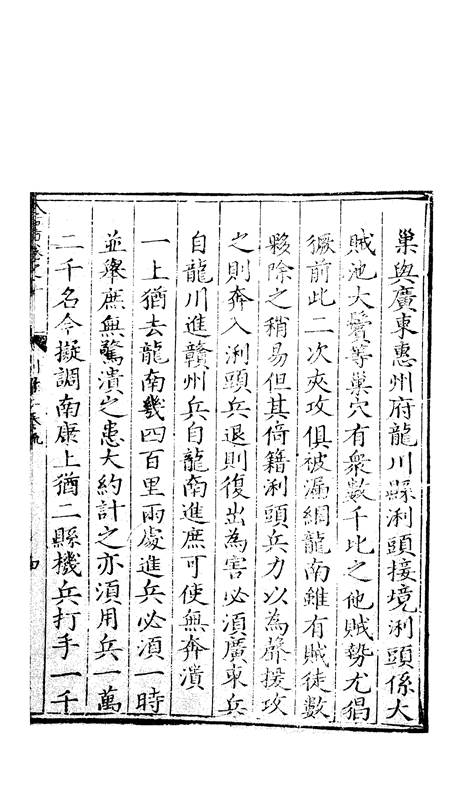 巢與廣東惠州府龍川縣浰頭接境浰頭係大
賊池大鬢等巢穴有衆數千比之他賊勢尤猖
獗前此二次夾攻俱被漏網龍南雖有賊徒數
夥除之稍易但其倚籍浰頭兵力以為聲援攻
之則奔入浰頭兵退則復出為害必須廣東兵
自龍川進贛州兵自龍南進庶可使無奔潰
一上猶去龍南幾四百里兩處進兵必須一時
並舉庶無驚潰之患大約計之亦須用兵一萬
二千名今擬調南康上猶二縣機兵打手一千